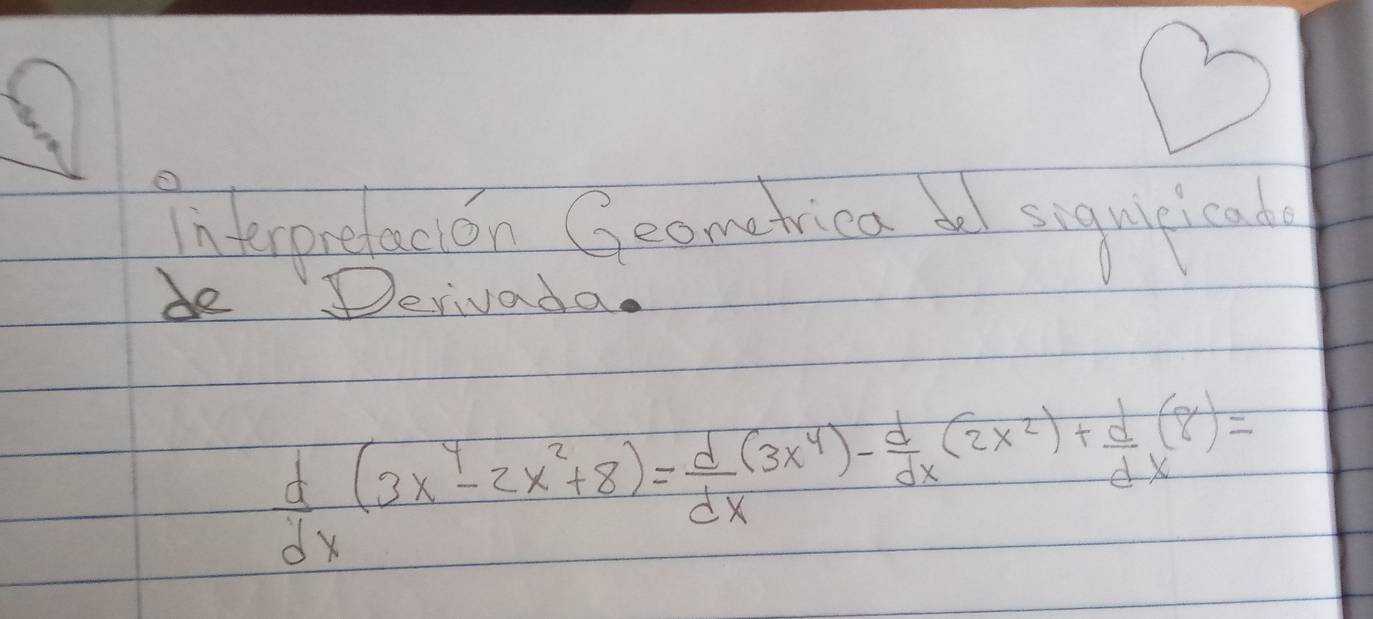 Interpretación Geometrica del significado
de Derivada.
d/dx (3x⁴ - 2x² + 8) = d/dx (3x⁴) - d/dx (2x²) + d/dx (8) =